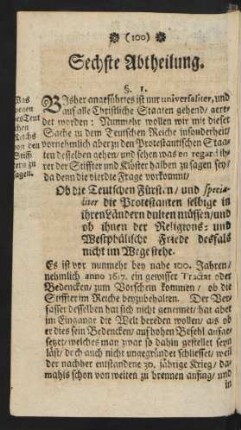 (100)
Sechste Abtheilung.
§. 1.
Bisher angeführtes ist nur universaliter, und
auf alle Christliche Staaten gehend, gere-
det worden: Nunmehr wollen wir wie dieser
Sache in dem Teutschen Reiche insonderheit,
vornehmlich aber zu den Protestantischen Staa-
ten desselben gehen, und sehen was en regard ih-
rer der Stiffter und Klöster halben zu sagen sey,
da denn die vierdte Frage vorkommt,
Ob die Teutschen Fürsten, und specia-
liter die Protestanten selbige in
ihren Ländern dulten müssen, und
ob ihnen der Religions- und
Westphälische Friede desfals
nicht im Wege stehe.
Es ist vor nunmehr bey nahe 100. Jahren,
nehmlich anno ein gewisser Tractat oder
Bedencken, zum Vorschein kommen, ob die
Stiffter im Reiche beyzubehalten. Der Ver-
fasser desselben hat sich nicht genennet, hat aber
im Eingange die Welt bereden wollen, als ob
er dies sein Bedencken, auf hohen Befehl aufge-
setzet, welches man zwar so dahin gestellet seyn
läst, doch auch nicht ungegründet schliesset, weil
der nachher entstandene 30. jährige Krieg, da-
mahls schon von weiten zu brennen anfing, und
in
Was
von den
Stiff-
tern zu
sagen.